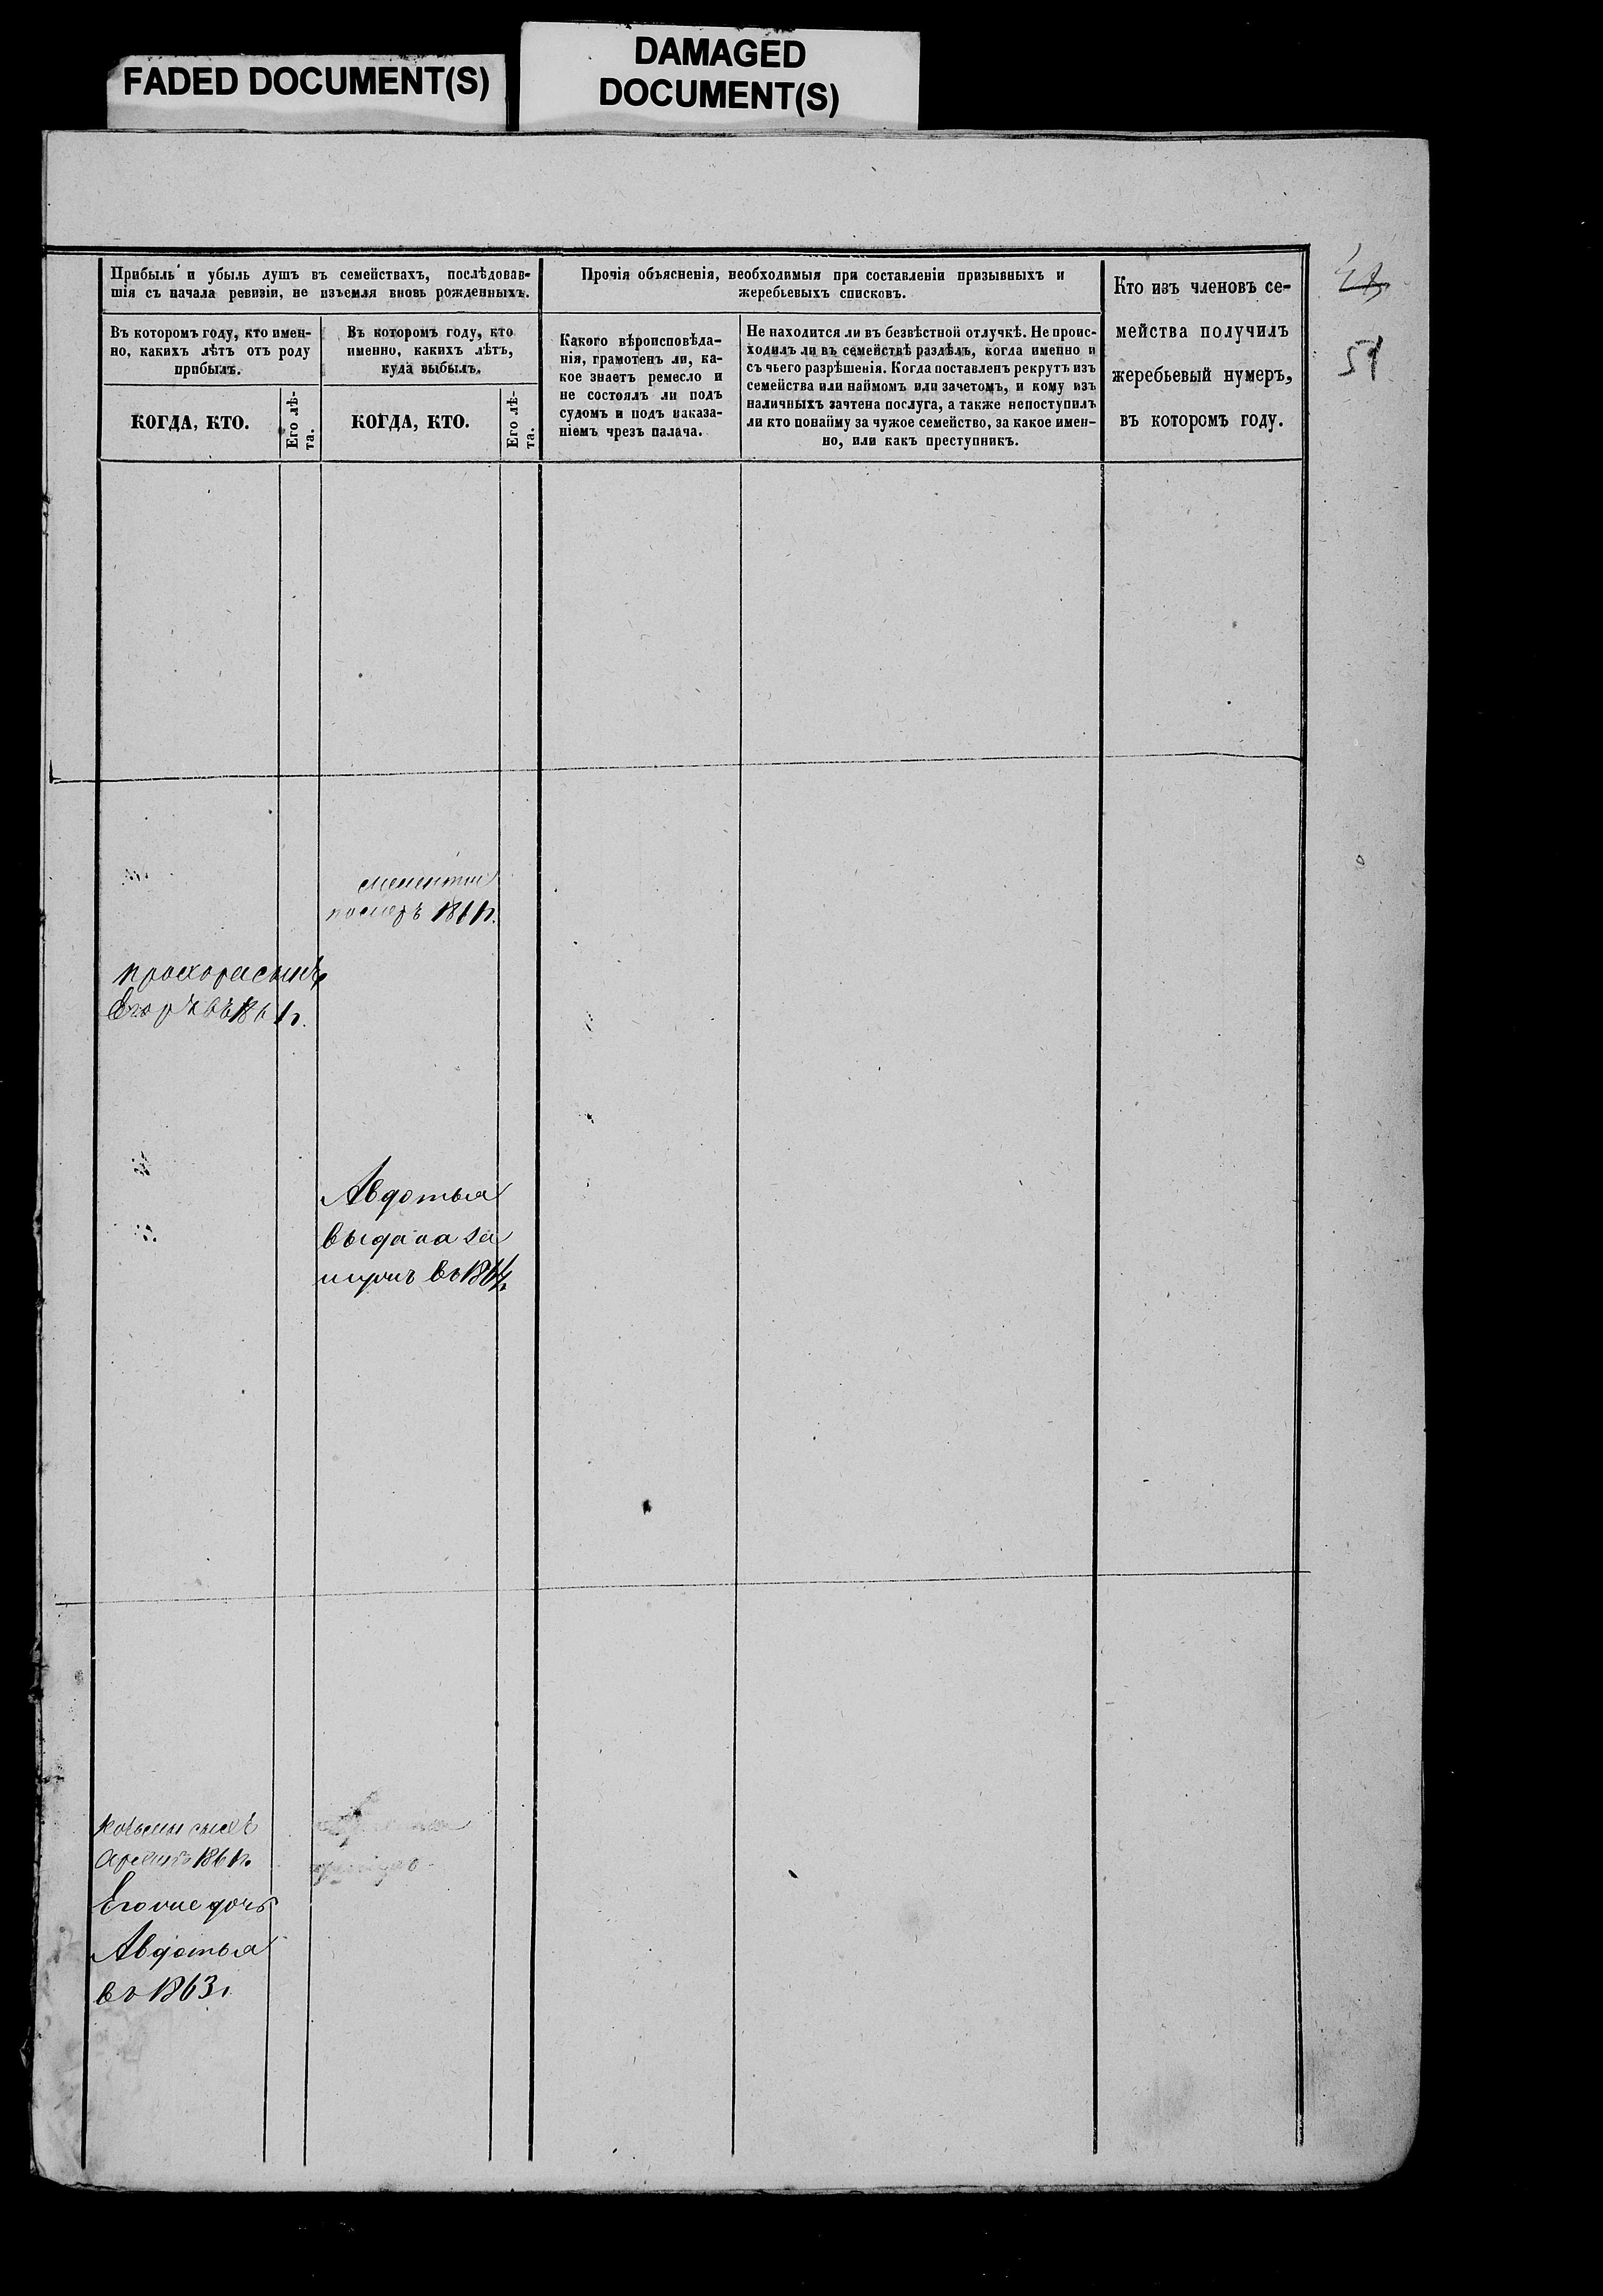 FADED DOCUMENT(S)
DAMAGED
DOCUMENT(S)
Прибыль и убыль душъ въ семействахъ, послѣдовав-
шія съ начала ревизіи, не изъемля вновь рожденныхъ.
Прочія объясненія, необходимыя при составленіи призывныхъ и
жеребьевыхъ списковъ.
Кто изъ членовъ се-
мейства получилъ
жеребьевый нумеръ,
въ которомъ году.
Въ которомъ году, кто имен-
но, какихъ лѣтъ отъ роду
прибылъ.
Въ которомъ году, кто
именно, какихъ лѣтъ,
куда выбылъ.
Какого вѣроисповѣда-
нія, грамотенъ ли, ка-
кое знаетъ ремесло и
не состоялъ ли подъ
судомъ и подъ наказа-
ніемъ чрезъ палача.
Не находится ли въ безвѣстной отлучкѣ. Не проис-
ходилъ ли въ семействѣ раздѣлъ, когда именно и
съ чьего разрѣшенія. Когда поставленъ рекрутъ изъ
семейства или наймомъ или зачетомъ, и кому изъ
наличныхъ зачтена послуга, а также непоступилъ
ли кто понайму за чужое семейство, за какое имен-
но, или какъ преступникъ.
КОГДА, КТО.
Его лѣ-
та.
КОГДА, КТО.
Его лѣ-
та.
51
померъ
прохора сынъ
Егоръ въ
Авдотья
выдана за
мужъ въ 1864г.
козьмы сынъ
1861г.
Его же дочь
Авдотья
въ 1863г.